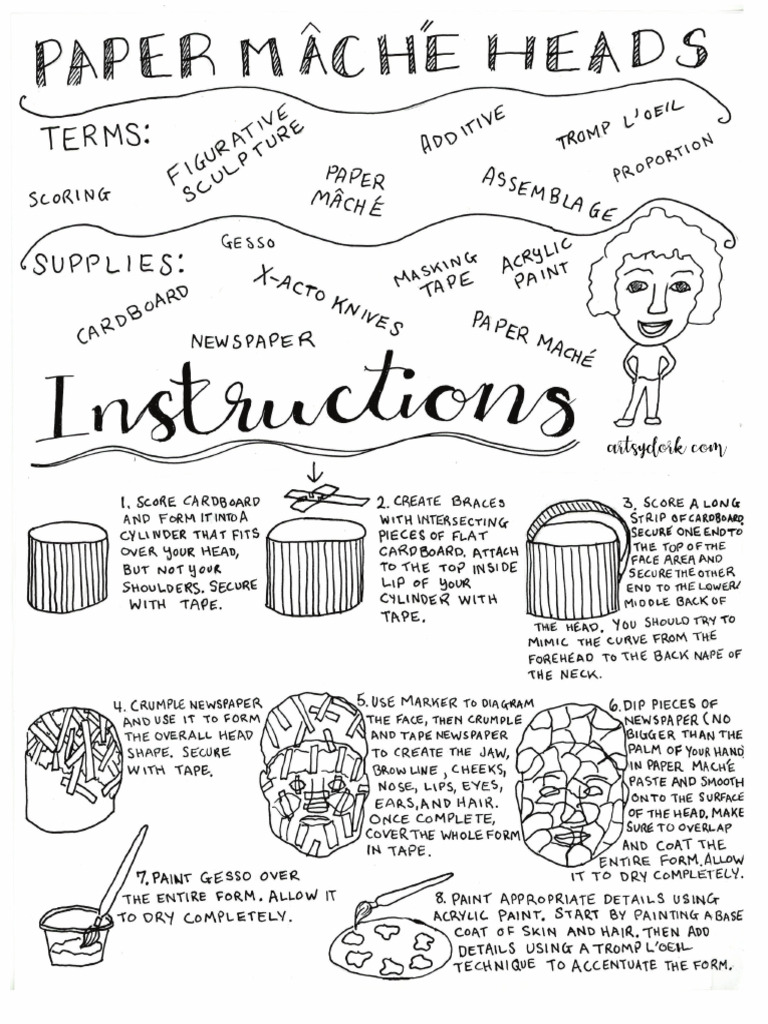 PAPER MÂCHÉ HEADS
TERMS:
SCORING
FIGURATIVE
SCULPTURE
PAPER
MÂCHÉ
ADDITIVE
ASSEMBLAGE
TROMP L'OEIL
PROPORTION
SUPPLIES:
GESSO
CARDBOARD
X-ACTO KNIVES
NEWSPAPER
MASKING
TAPE
ACRYLIC
PAINT
PAPER MACHÉ
Instructions
artsydork.com
1. SCORE CARDBOARD
AND FORM IT INTO A
CYLINDER THAT FITS
OVER YOUR HEAD,
BUT NOT YOUR
SHOULDERS. SECURE
WITH TAPE.
2. CREATE BRACES
WITH INTERSECTING
PIECES OF FLAT
CARDBOARD. ATTACH
TO THE TOP INSIDE
LIP OF YOUR
CYLINDER WITH
TAPE.
3. SCORE A LONG
STRIP OF CARDBOARD.
SECURE ONE END TO
THE TOP OF THE
FACE AREA AND
SECURE THE OTHER
END TO THE LOWER/
MIDDLE BACK OF
THE HEAD. YOU SHOULD TRY TO
MIMIC THE CURVE FROM THE
FOREHEAD TO THE BACK NAPE OF
THE NECK.
4. CRUMPLE NEWSPAPER
AND USE IT TO FORM
THE OVERALL HEAD
SHAPE. SECURE
WITH TAPE.
5. USE MARKER TO DIAGRAM
THE FACE, THEN CRUMPLE
AND TAPE NEWSPAPER
TO CREATE THE JAW,
BROW LINE, CHEEKS,
NOSE, LIPS, EYES,
EARS, AND HAIR.
ONCE COMPLETE,
COVER THE WHOLE FORM
IN TAPE.
6. DIP PIECES OF
NEWSPAPER (NO
BIGGER THAN THE
PALM OF YOUR HAND)
IN PAPER MACHÉ
PASTE AND SMOOTH
ONTO THE SURFACE
OF THE HEAD. MAKE
SURE TO OVERLAP
AND COAT THE
ENTIRE FORM. ALLOW
IT TO DRY COMPLETELY.
7. PAINT GESSO OVER
THE ENTIRE FORM. ALLOW IT
TO DRY COMPLETELY.
8. PAINT APPROPRIATE DETAILS USING
ACRYLIC PAINT. START BY PAINTING A BASE
COAT OF SKIN AND HAIR. THEN ADD
DETAILS USING A TROMP L'OEIL
TECHNIQUE TO ACCENTUATE THE FORM.